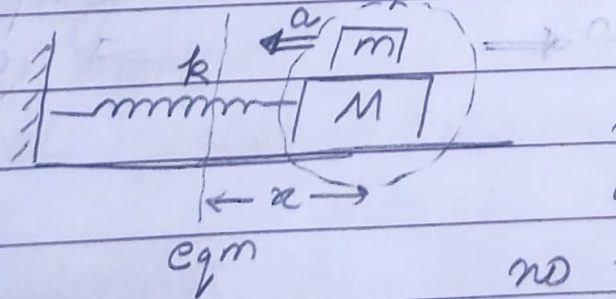 a
m
k
M
x
eqm
no